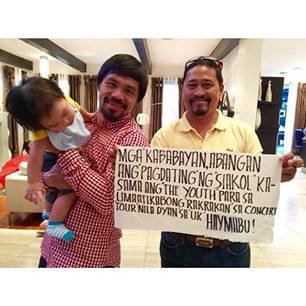 MGA KABABAYAN, ABANGAN
ANG PAGDATING NG "SIAKOL" KA-
SAMA ANG THE YOUTH PARA SA
UMAATIKABONG RAKRAKAN SA CONCERT
TOUR NILA DYAN SA UK HAYMABU!